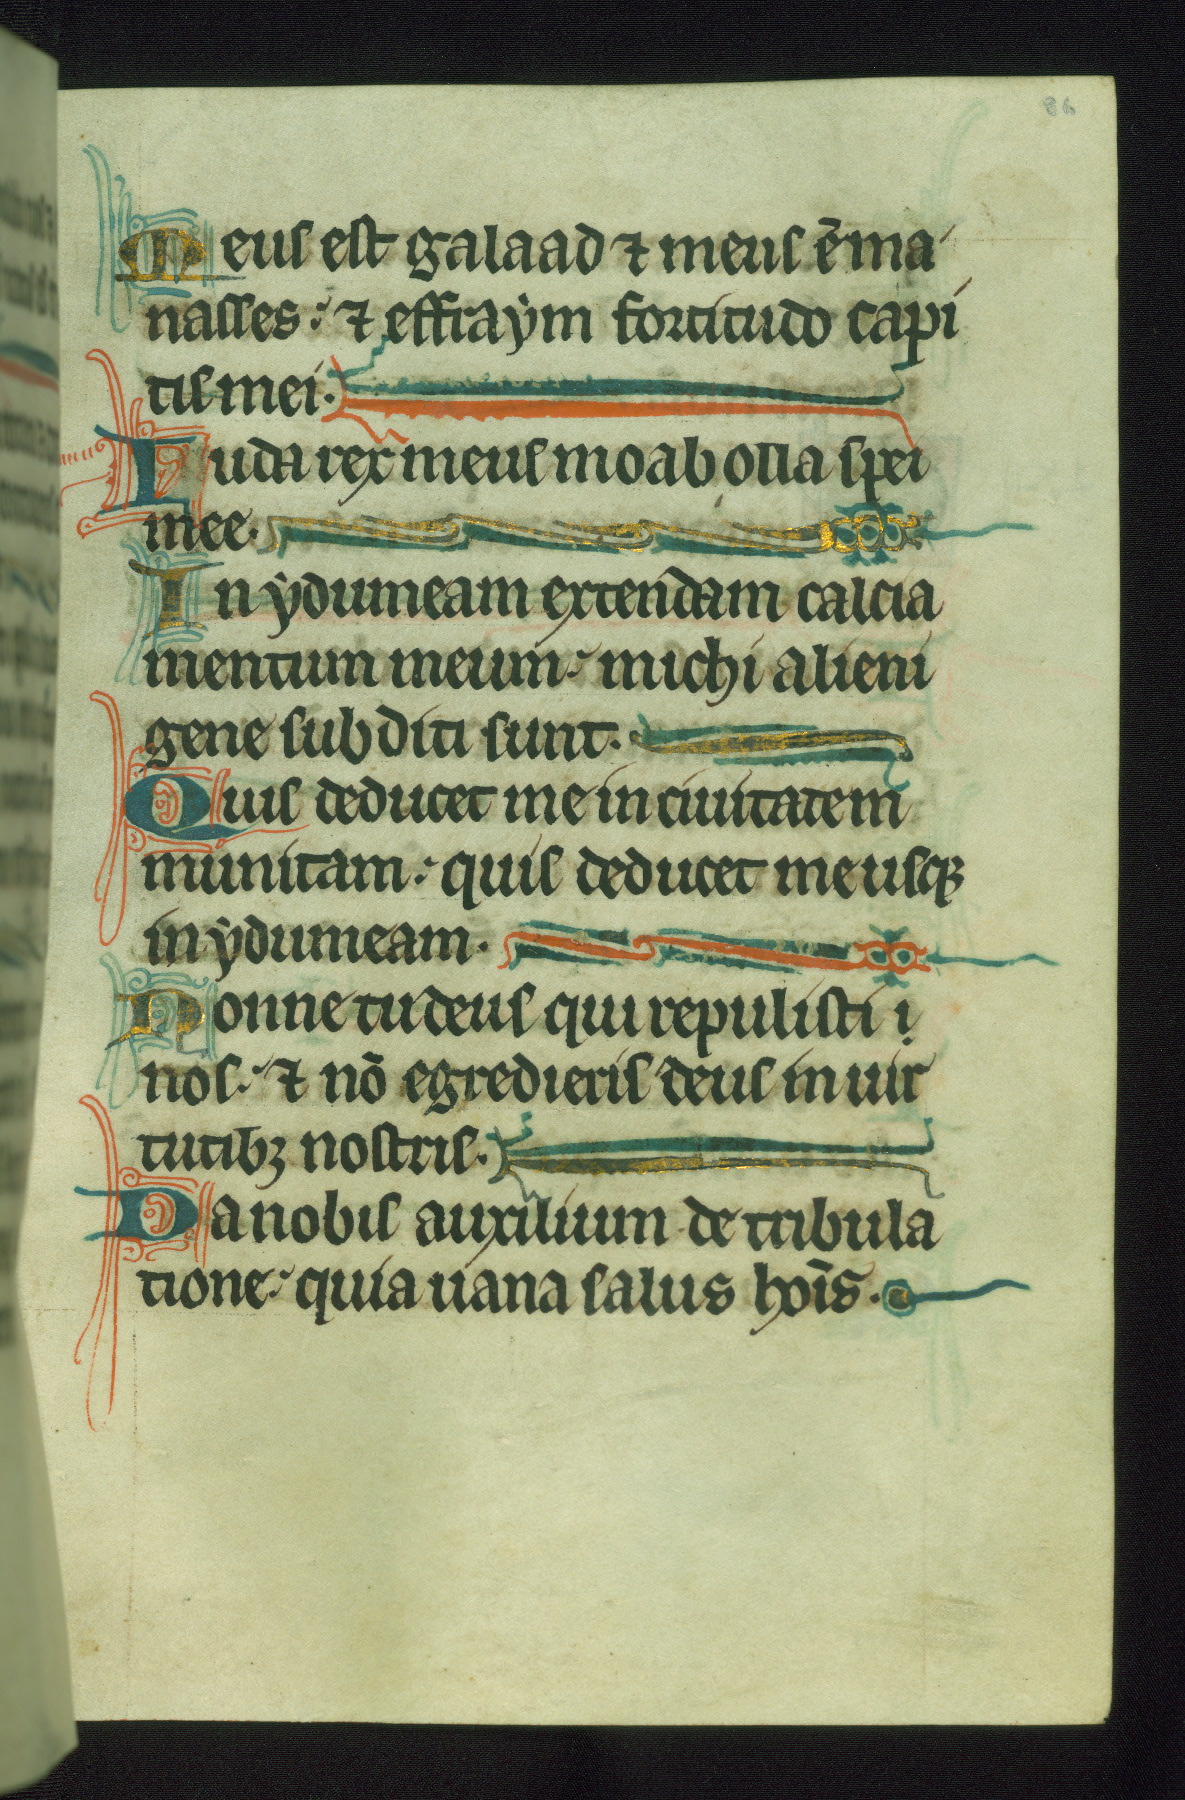 86
Meus est galaad ⁊ meus ē ma
nasses: ⁊ effraẏm fortitudo capi
tis mei.
Iuda rex meus moab olla spei
mee.
In ẏdumeam extendam calcia
mentum meum: michi alieni
gene subditi sunt.
Quis deducet me in ciuitatem
munitam: quis deducet me usqꝫ
in ẏdumeam.
Nonne tu deus qui repulisti i
nos: ⁊ nō egredieris deus in uir
tutibꝫ nostris.
Da nobis auxilium de tribula
tione: quia uana salus hoīs.